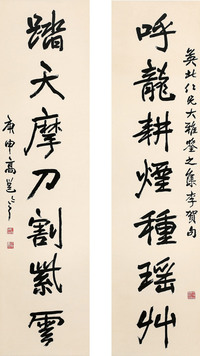 北仁兄大雅鑒之集李賀句
呼龍耕煙種瑤艸
踏天摩刀割紫雲
庚申高邕